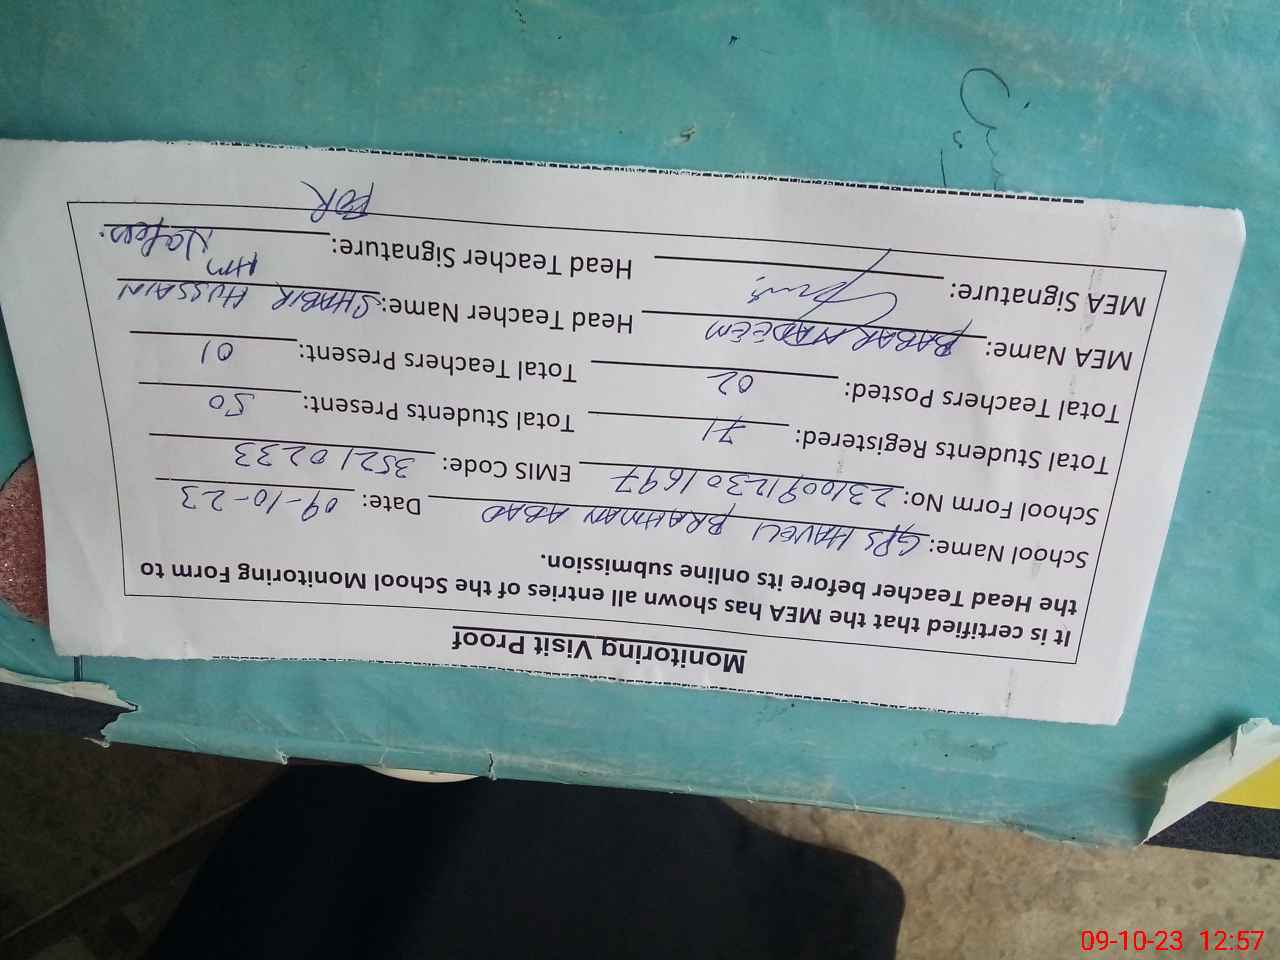 Monitoring Visit Proof
It is certified that the MEA has shown all entries of the School Monitoring Form to
the Head Teacher before its online submission.
School Name: GPS HAVELI BRAHMAN ABAD Date: 09-10-23
School Form No: 23100912301697 EMIS Code: 35210233
Total Students Registered: 71 Total Students Present: 50
Total Teachers Posted: 02 Total Teachers Present: 01
MEA Name: BABAR NADEEM Head Teacher Name: SHABIR HUSSAIN
HM
MEA Signature: Head Teacher Signature:
FOR
09-10-23 12:57